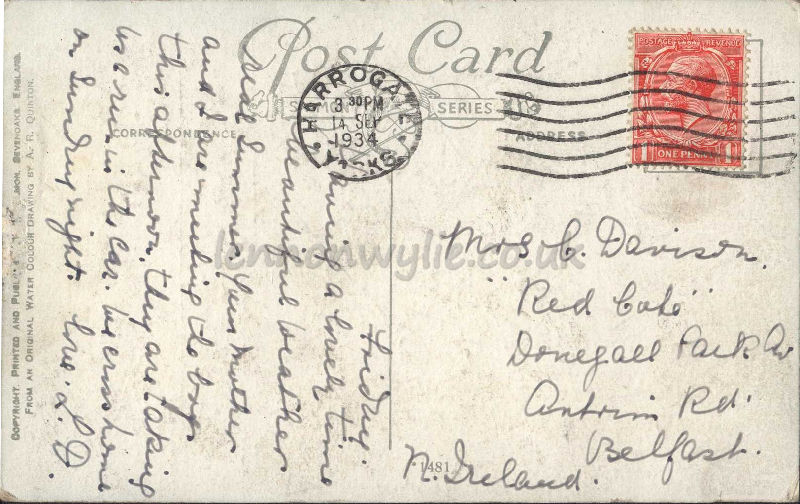 Post Card
SALMON SERIES
CORRESPONDENCE
ADDRESS
HARROGATE
3 30 PM
14 SEP
1934
YORKS.
POSTAGE REVENUE
ONE PENNY
Friday.
Having a lovely time
beautiful weather
real Summer. Your Mother
and I are meeting the boys
this afternoon. They are taking
us a run in the car. We cross home
on Sunday night. Love. L.D.
Mrs C. Davison.
"Red Cote"
Donegall Park Av
Antrim Rd.
Belfast.
N. Ireland.
1481
COPYRIGHT. PRINTED AND PUBLISHED BY J. SALMON. SEVENOAKS. ENGLAND.
FROM AN ORIGINAL WATER COLOUR DRAWING BY A. R. QUINTON.
lennonwylie.co.uk